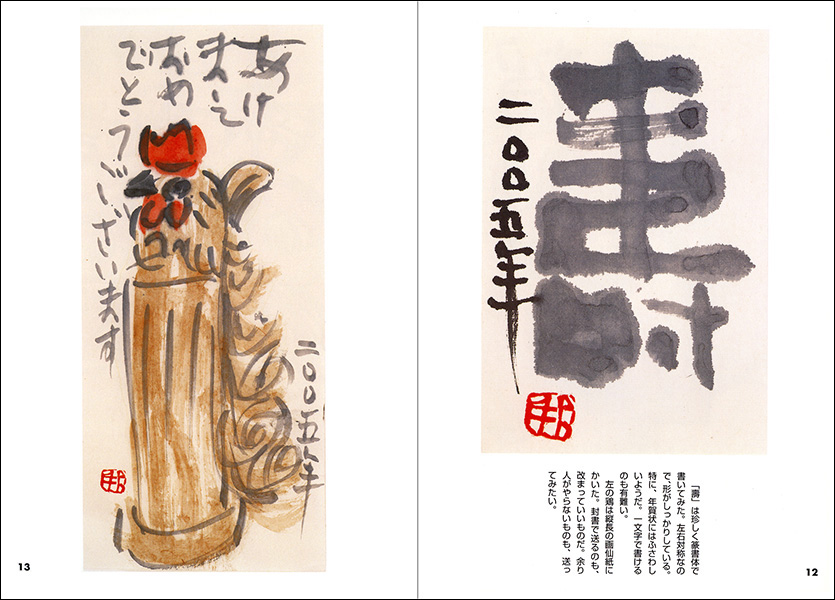 壽
二〇〇五年
「壽」は珍しく篆書体で
書いてみた。左右対称なの
で、形がしっかりしている。
特に、年賀状にはふさわし
いようだ。一文字で書ける
のも有難い。
左の鶏は縦長の画仙紙に
かいた。封書で送るのも、
改まっていいものだ。余り
人がやらないものも、送っ
てみたい。
12
あけ
まして
おめ
でとうございます
二〇〇五年
13